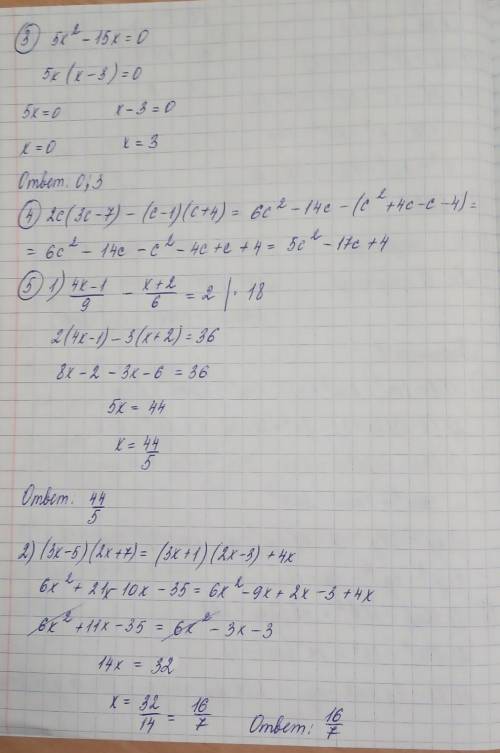 ③ 5x² - 15x = 0
5x(x-3)=0
5x=0 x-3=0
x=0 x=3
Ответ. 0; 3
④ 2c(3c-7) - (c-1)(c+4) = 6c² - 14c - (c² + 4c - c - 4) =
= 6c² - 14c - c² - 4c + c + 4 = 5c² - 17c + 4
⑤ 1) (4x-1)/9 - (x+2)/6 = 2 | · 18
2(4x-1) - 3(x+2) = 36
8x - 2 - 3x - 6 = 36
5x = 44
x = 44/5
Ответ. 44/5
2) (3x-5)(2x+7) = (3x+1)(2x-3) + 4x
6x² + 21x - 10x - 35 = 6x² - 9x + 2x - 3 + 4x
6x² + 11x - 35 = 6x² - 3x - 3
14x = 32
x = 32/14 = 16/7 Ответ: 16/7